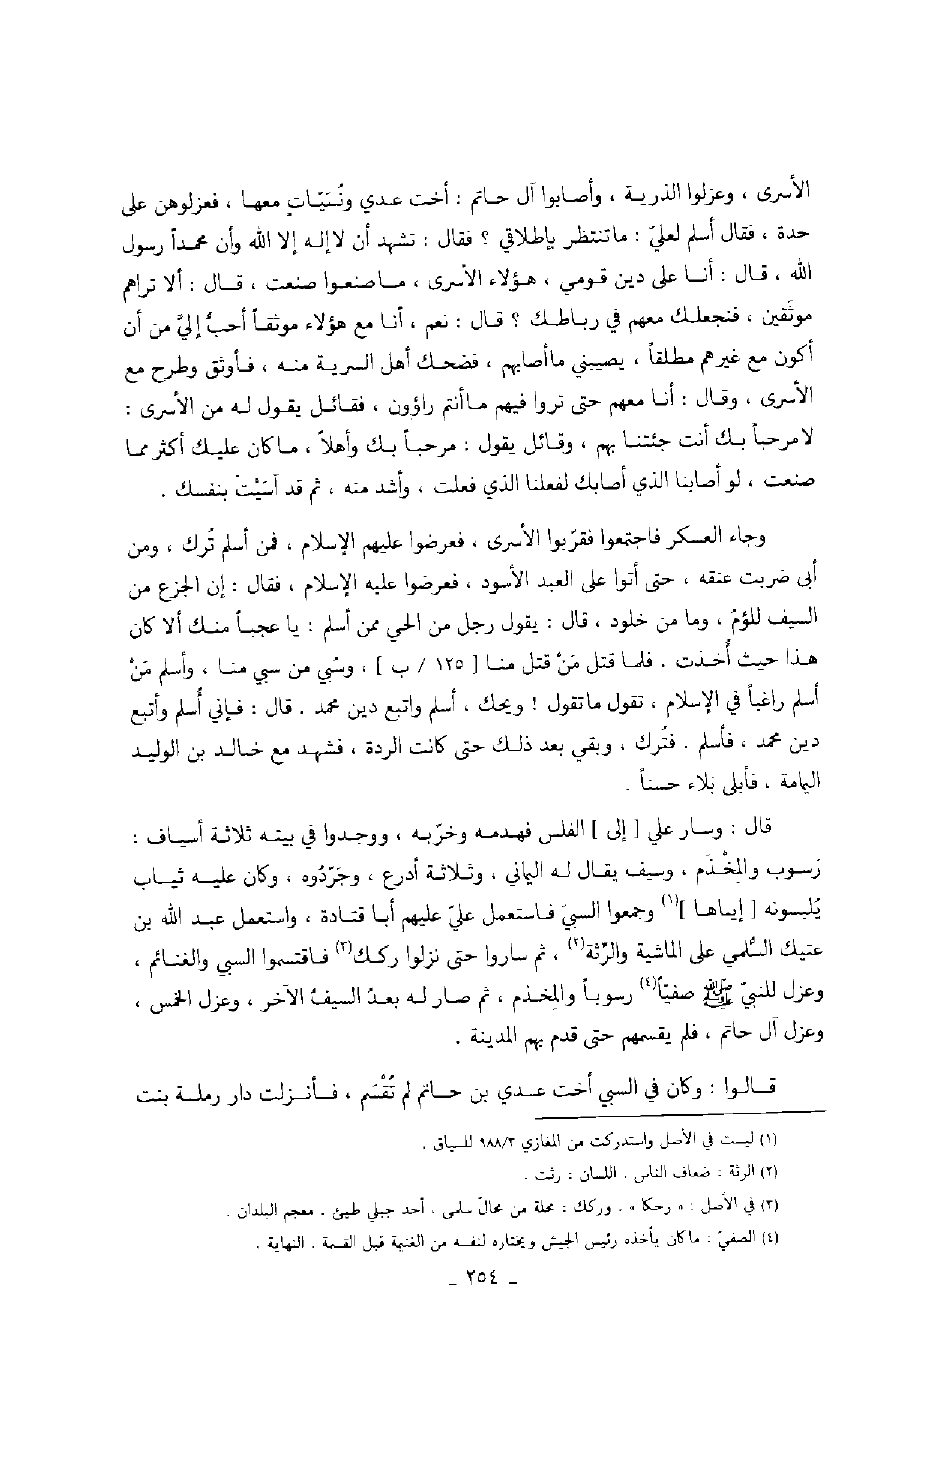 الأسرى ، وعزلوا الذرية ، وأصابوا آل حاتم : أخت عدي ونُسَيّات معها ، فعزلوهن على
حدة ، فقال أسلم لعليّ : ماتنتظر بإطلاقي ؟ فقال : تشهد أن لاإله إلا الله وأن محمداً رسول
الله ، قال : أنا على دين قومي ، هؤلاء الأسرى ، ماصنعوا صنعت ، قال : ألا تراهم
موثَقين ، فنجعلك معهم في رباطك ؟ قال : نعم ، أنا مع هؤلاء موثقاً أحبُّ إليّ من أن
أكون مع غيرهم مطلقاً ، يصيبني ماأصابهم ، فضحك أهل السرية منه ، فأوثق وطرح مع
الأسرى ، وقال : أنا معهم حتى تروا فيهم ماأنتم راؤون ، فقائل يقول له من الأسرى :
لامرحباً بك أنت جئتنا بهم ، وقائل يقول : مرحباً بك وأهلاً ، ماكان عليك أكثر مما
صنعت ، لو أصابنا الذي أصابك لفعلنا الذي فعلت ، وأشد منه ، ثم قد آسَيْتَ بنفسك .
وجاء العسكر فاجتمعوا فقرّبوا الأسرى ، فعرضوا عليهم الإسلام ، فمن أسلم تُرك ، ومن
أبى ضربت عنقه ، حتى أتوا على العبد الأسود ، فعرضوا عليه الإسلام ، فقال : إن الجزع من
السيف للؤمٌ ، وما من خلود ، قال : يقول رجل من الحي ممن أسلم : يا عجباً منك ألا كان
هذا حيث أُخذت . فلما قتل مَنْ قتل منا [ ١٢٥ / ب ] ، وسُبي من سبي منا ، وأسلم مَنْ
أسلم راغباً في الإسلام ، تقول ماتقول ! ويحك ، أسلم واتبع دين محمد . قال : فإني أُسلم وأتبع
دين محمد ، فأسلم . فتُرك ، وبقي بعد ذلك حتى كانت الردة ، فشهد مع خالد بن الوليد
اليمامة ، فأبلى بلاء حسناً .
قال : وسار علي [ إلى ] الفلس فهدمه وخرّبه ، ووجدوا في بيته ثلاثة أسياف :
رَسوب والمِخْذَم ، وسيف يقال له اليماني ، وثلاثة أدرع ، وجَرّدُوه ، وكان عليه ثياب
يُلبسونه [ إياها ](١) وجمعوا السبيَ فاستعمل عليّ عليهم أبا قتادة ، واستعمل عبد الله بن
عتيك السُّلمي على الماشية والرِّثة(٢) ، ثم ساروا حتى نزلوا ركك(٣) فاقتسموا السبي والغنائم ،
وعزل للنبيّ ﷺ صفيّاً(٤) رسوباً والمخذم ، ثم صار له بعدُ السيفُ الآخر ، وعزل الخمس ،
وعزل آل حاتم ، فلم يقسمهم حتى قدم بهم المدينة .
قالوا : وكان في السبي أخت عدي بن حاتم لم تُقْسَم ، فأنزلت دار رملة بنت
(١) ليست في الأصل واستدركت من المغازي ٩٨٨/٣ للسياق .
(٢) الرثة : ضعاف الناس . اللسان : رثث .
(٣) في الأصل : « رحكا » . وركك : محلة من محالّ سلمى ، أحد جبلي طيئ . معجم البلدان .
(٤) الصفيّ : ماكان يأخذه رئيس الجيش ويختاره لنفسه من الغنيمة قبل القسمة . النهاية .
ـ ٢٥٤ ـ